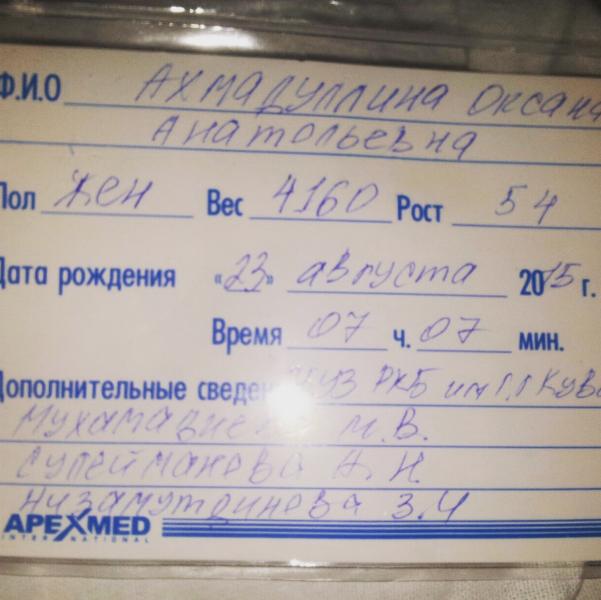 Ф.И.О Ахмадуллина Оксана
Анатольевна
Пол жен Вес 4160 Рост 54
Дата рождения «23» августа 2015 г.
Время 07 ч. 07 мин.
Дополнительные сведен РКБ им Г.Г Кува
М.В.
Сулейманова А.Н.
Низамутдинова З.Ч
APEXMED
INTERNATIONAL